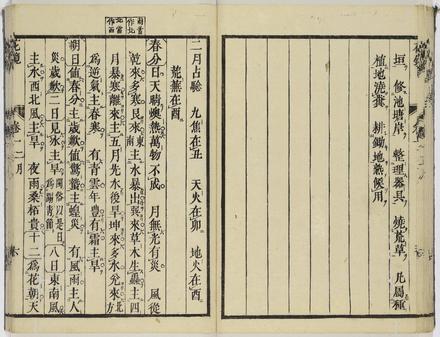 垣　修池塘岸　整理器具　燒荒草　凡屬種
植地澆糞　耕鋤地熟候用
二月占驗　九焦在丑　天火在卯　地火在酉
荒蕪在酉
春分日天晴燠熱萬物不成　月無光有災　風從
乾來多寒艮來主水暴出巽來草木生蟲主四
月暴寒離來主五月先水後旱坤來多水兌來
為逆氣主春寒　有青雲年豐有霜主旱
朔日值春分主歲歉值驚蟄主蝗災　有風雨主人
災歲歉二日見氷主旱　閩俗以是日為踏青節　八日東南風
主水西北風主旱　夜雨桑柘貴十二為花朝天
卷一二月
六